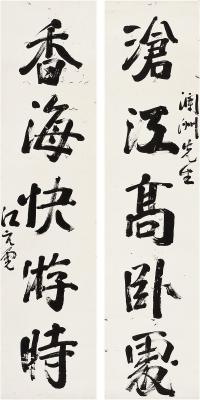 洲先生
滄江髙卧處
香海快游時
江亢虎